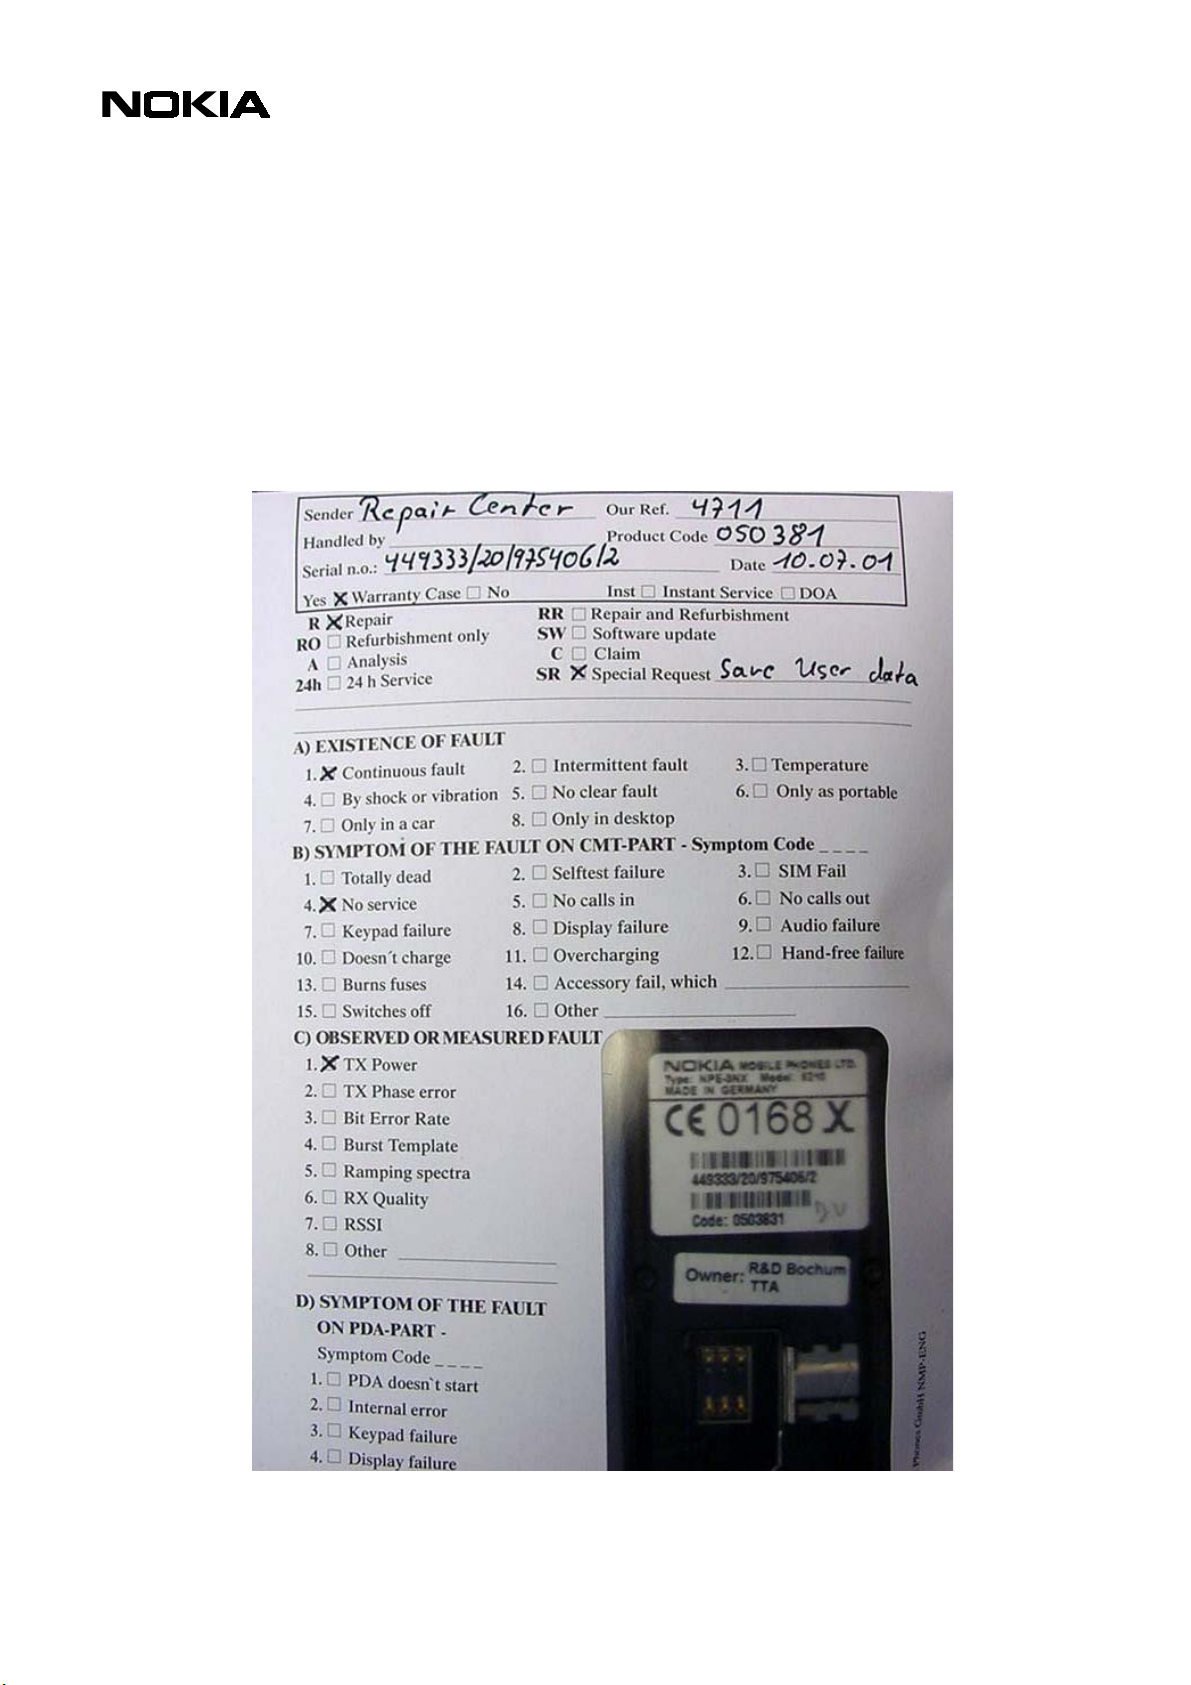 NOKIA
Sender Repair Center Our Ref. 4711
Handled by Product Code 050381
Serial n.o.: 449333/20/975406/2 Date 10.07.01
Yes Warranty Case No Inst Instant Service DOA
R Repair RR Repair and Refurbishment
RO Refurbishment only SW Software update
A Analysis C Claim
24h 24 h Service SR Special Request Save User data
A) EXISTENCE OF FAULT
1. Continuous fault 2. Intermittent fault 3. Temperature
4. By shock or vibration 5. No clear fault 6. Only as portable
7. Only in a car 8. Only in desktop
B) SYMPTOM OF THE FAULT ON CMT-PART - Symptom Code _ _ _ _
1. Totally dead 2. Selftest failure 3. SIM Fail
4. No service 5. No calls in 6. No calls out
7. Keypad failure 8. Display failure 9. Audio failure
10. Doesn´t charge 11. Overcharging 12. Hand-free failure
13. Burns fuses 14. Accessory fail, which
15. Switches off 16. Other
C) OBSERVED OR MEASURED FAULT
1. TX Power
2. TX Phase error
3. Bit Error Rate
4. Burst Template
5. Ramping spectra
6. RX Quality
7. RSSI
8. Other
D) SYMPTOM OF THE FAULT
ON PDA-PART -
Symptom Code _ _ _ _
1. PDA doesn`t start
2. Internal error
3. Keypad failure
4. Display failure
NOKIA MOBILE PHONES LTD.
Type: NPE-3NX Model: 6210
MADE IN GERMANY
CE 0168 X
449333/20/975406/2
Code: 0503831
Owner: R&D Bochum
TTA
Phones GmbH NMP-ENG